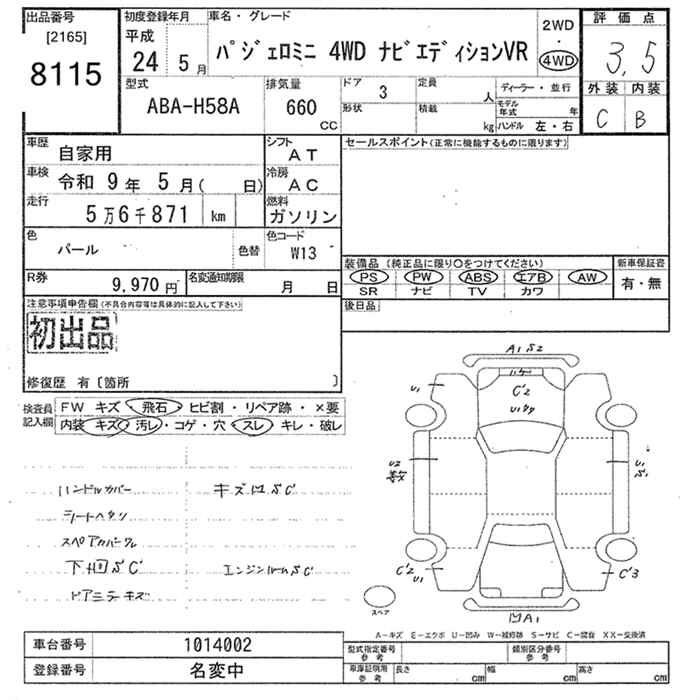 出品番号
[2165]
8115
初度登録年月
平成
24 5 月
車名・グレード
パジェロミニ 4WD ナビエディションVR
2WD
・
4WD
評価点
3.5
外装 内装
C B
型式
ABA-H58A
排気量
660
cc
ドア
3
形状
定員
人
積載
kg
ディーラー・並行
モデル年式 年
ハンドル 左・右
車歴
自家用
シフト
AT
車検
令和 9年 5月( 日)
冷房
AC
走行
5万6千871 km
燃料
ガソリン
色
パール
色替
色コード
W13
R券
9,970 円
名変通知期限
月 日
セールスポイント(正常に機能するものに限ります)
装備品(純正品に限り○をつけてください)
PS PW ABS エアB AW
SR ナビ TV カワ
新車保証書
有・無
後日品
注意事項申告欄(不具合内容等は具体的に記入して下さい)
初出品
修復歴 有〔箇所 〕
検査員記入欄
FW キズ・飛石・ヒビ割・リペア跡・×要
内装 キズ・汚レ・コゲ・穴・スレ・キレ・破レ
ハンドルカバー
キズ凹SC
シートヘタリ
下回SC
エンジンルームSC
ドアミラーキズ
A1S2
C'2
U1
U2
U1
S1
C'2
U1
C'3
スペア
凹A1
A－キズ E－エクボ U－凹み W－補修跡 S－サビ C－腐食 XX－交換済
車台番号
1014002
登録番号
名変中
型式指定番号
参考
類別区分番号
参考
車庫証明用
参考
長さ
cm
幅
cm
高さ
cm